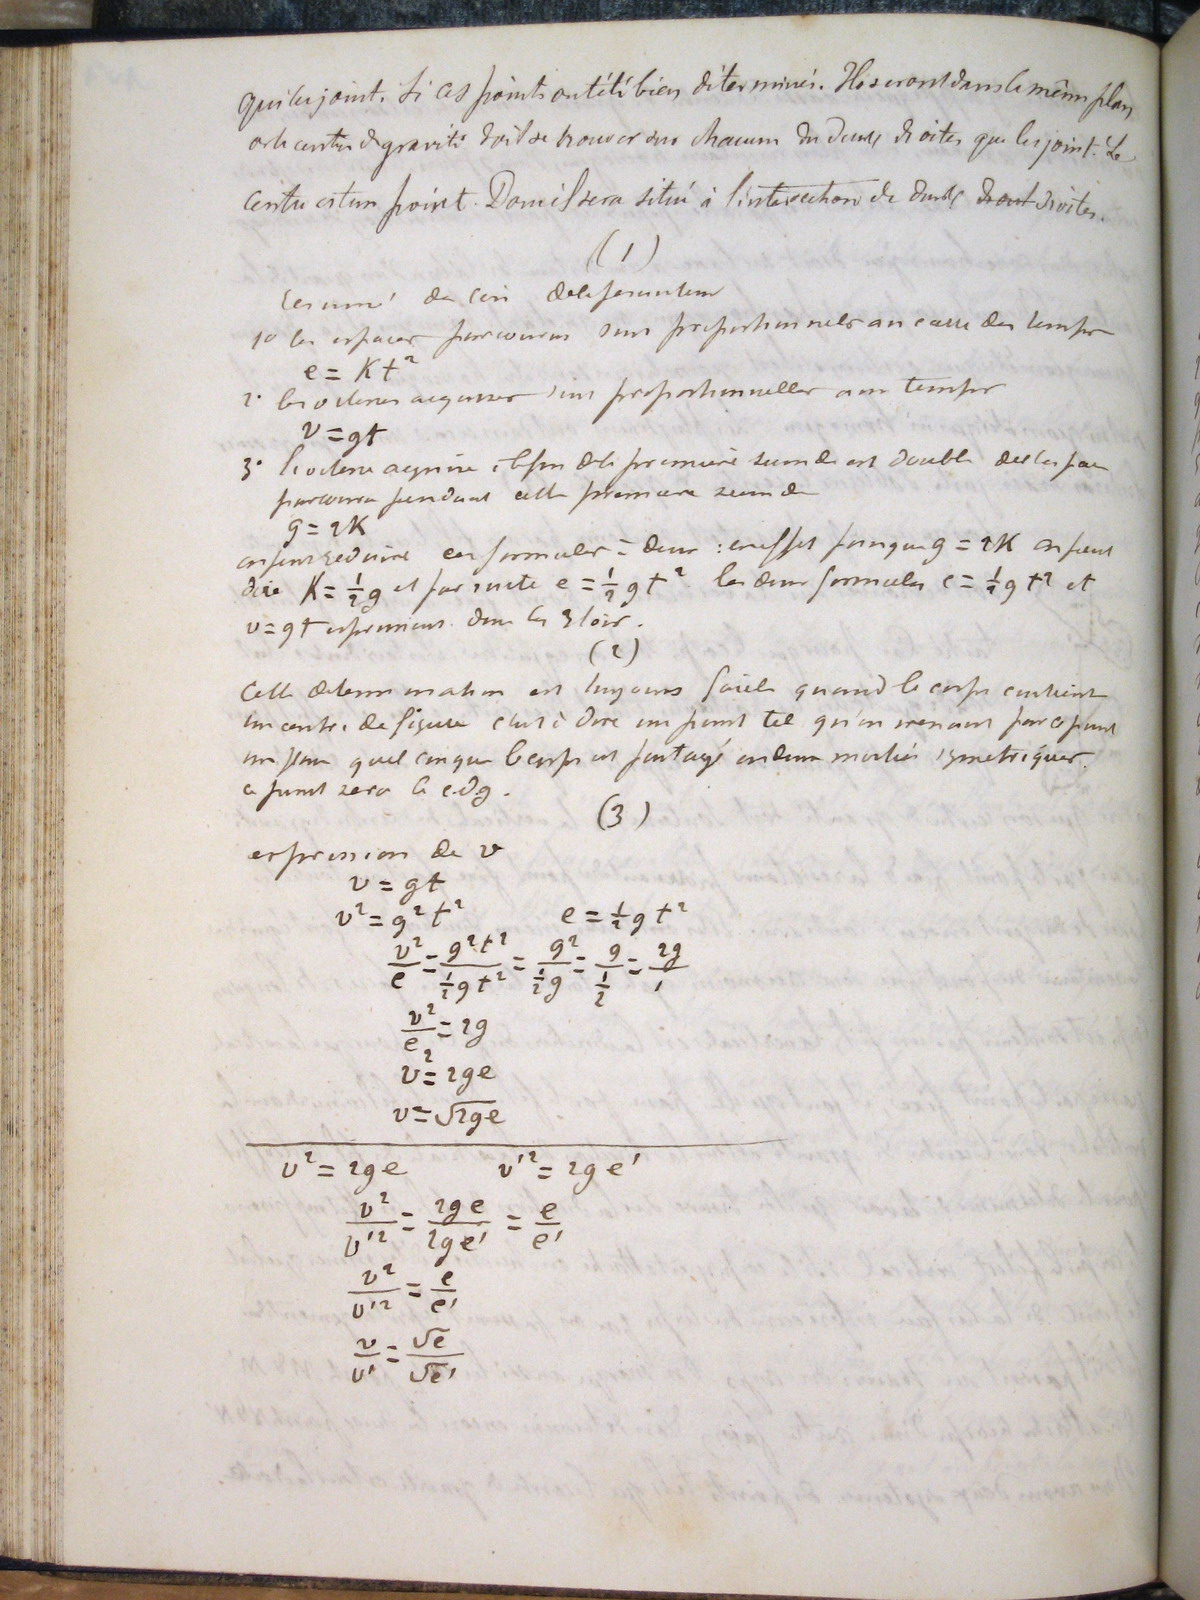 qui les joint. Si ces points ont été bien déterminés. Ils seront dans le même plan
or le centre de gravité doit se trouver sur chacune des deux droites que les joint. Le
centre est un point. Donc il sera situé à l'intersection de deux droites.
(1)
résumé de lois de la pesanteur
1° les espaces parcourus sont proportionnels au carré des temps
e = Kt²
2° les vitesses acquises sont proportionnelles aux temps
v = gt
3° la vitesse acquise à la fin de la première seconde est double de l'espace
parcouru pendant cette première seconde
g = 2K
on peut réduire ces formules à deux : en effet puisque g = 2K on peut
dire K = ½g et par suite e = ½gt² les deux formules e = ½gt² et
v = gt expriment donc les 3 lois.
(2)
Cette détermination est toujours facile quand le corps contient
un centre de figure c'est à dire un point tel qu'en menant par ce point
un plan quelconque le corps est partagé en deux moitiés symétriques.
ce point sera le c.d.g.
(3)
expression de v
v = gt
v² = g²t² e = ½gt²
v²/e = g²t²/½gt² = g²/½g = g/½ = 2g/1
v²/e = 2g
v² = 2ge
v = √2ge
v² = 2ge v'² = 2ge'
v²/v'² = 2ge/2ge' = e/e'
v²/v'² = e/e'
v/v' = √e/√e'